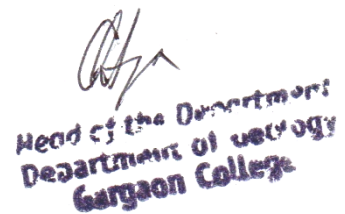 Head of the Department
Department of Geology
Gargaon College